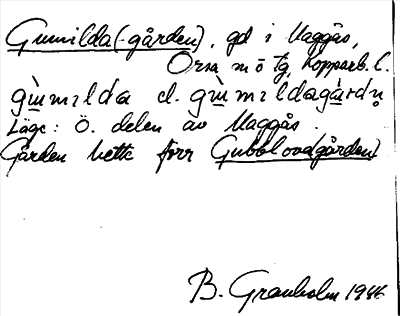 Gunnilda(-gården), gd i Maggås,
Orsa sn ö tg, Kopparb. l.
gɯ̀nɪlda el. gɯ̀nɪldagàrdn̥
Läge: Ö. delen av Maggås.
Gården hette förr Gubblovo(gården)
B. Granholm 1946